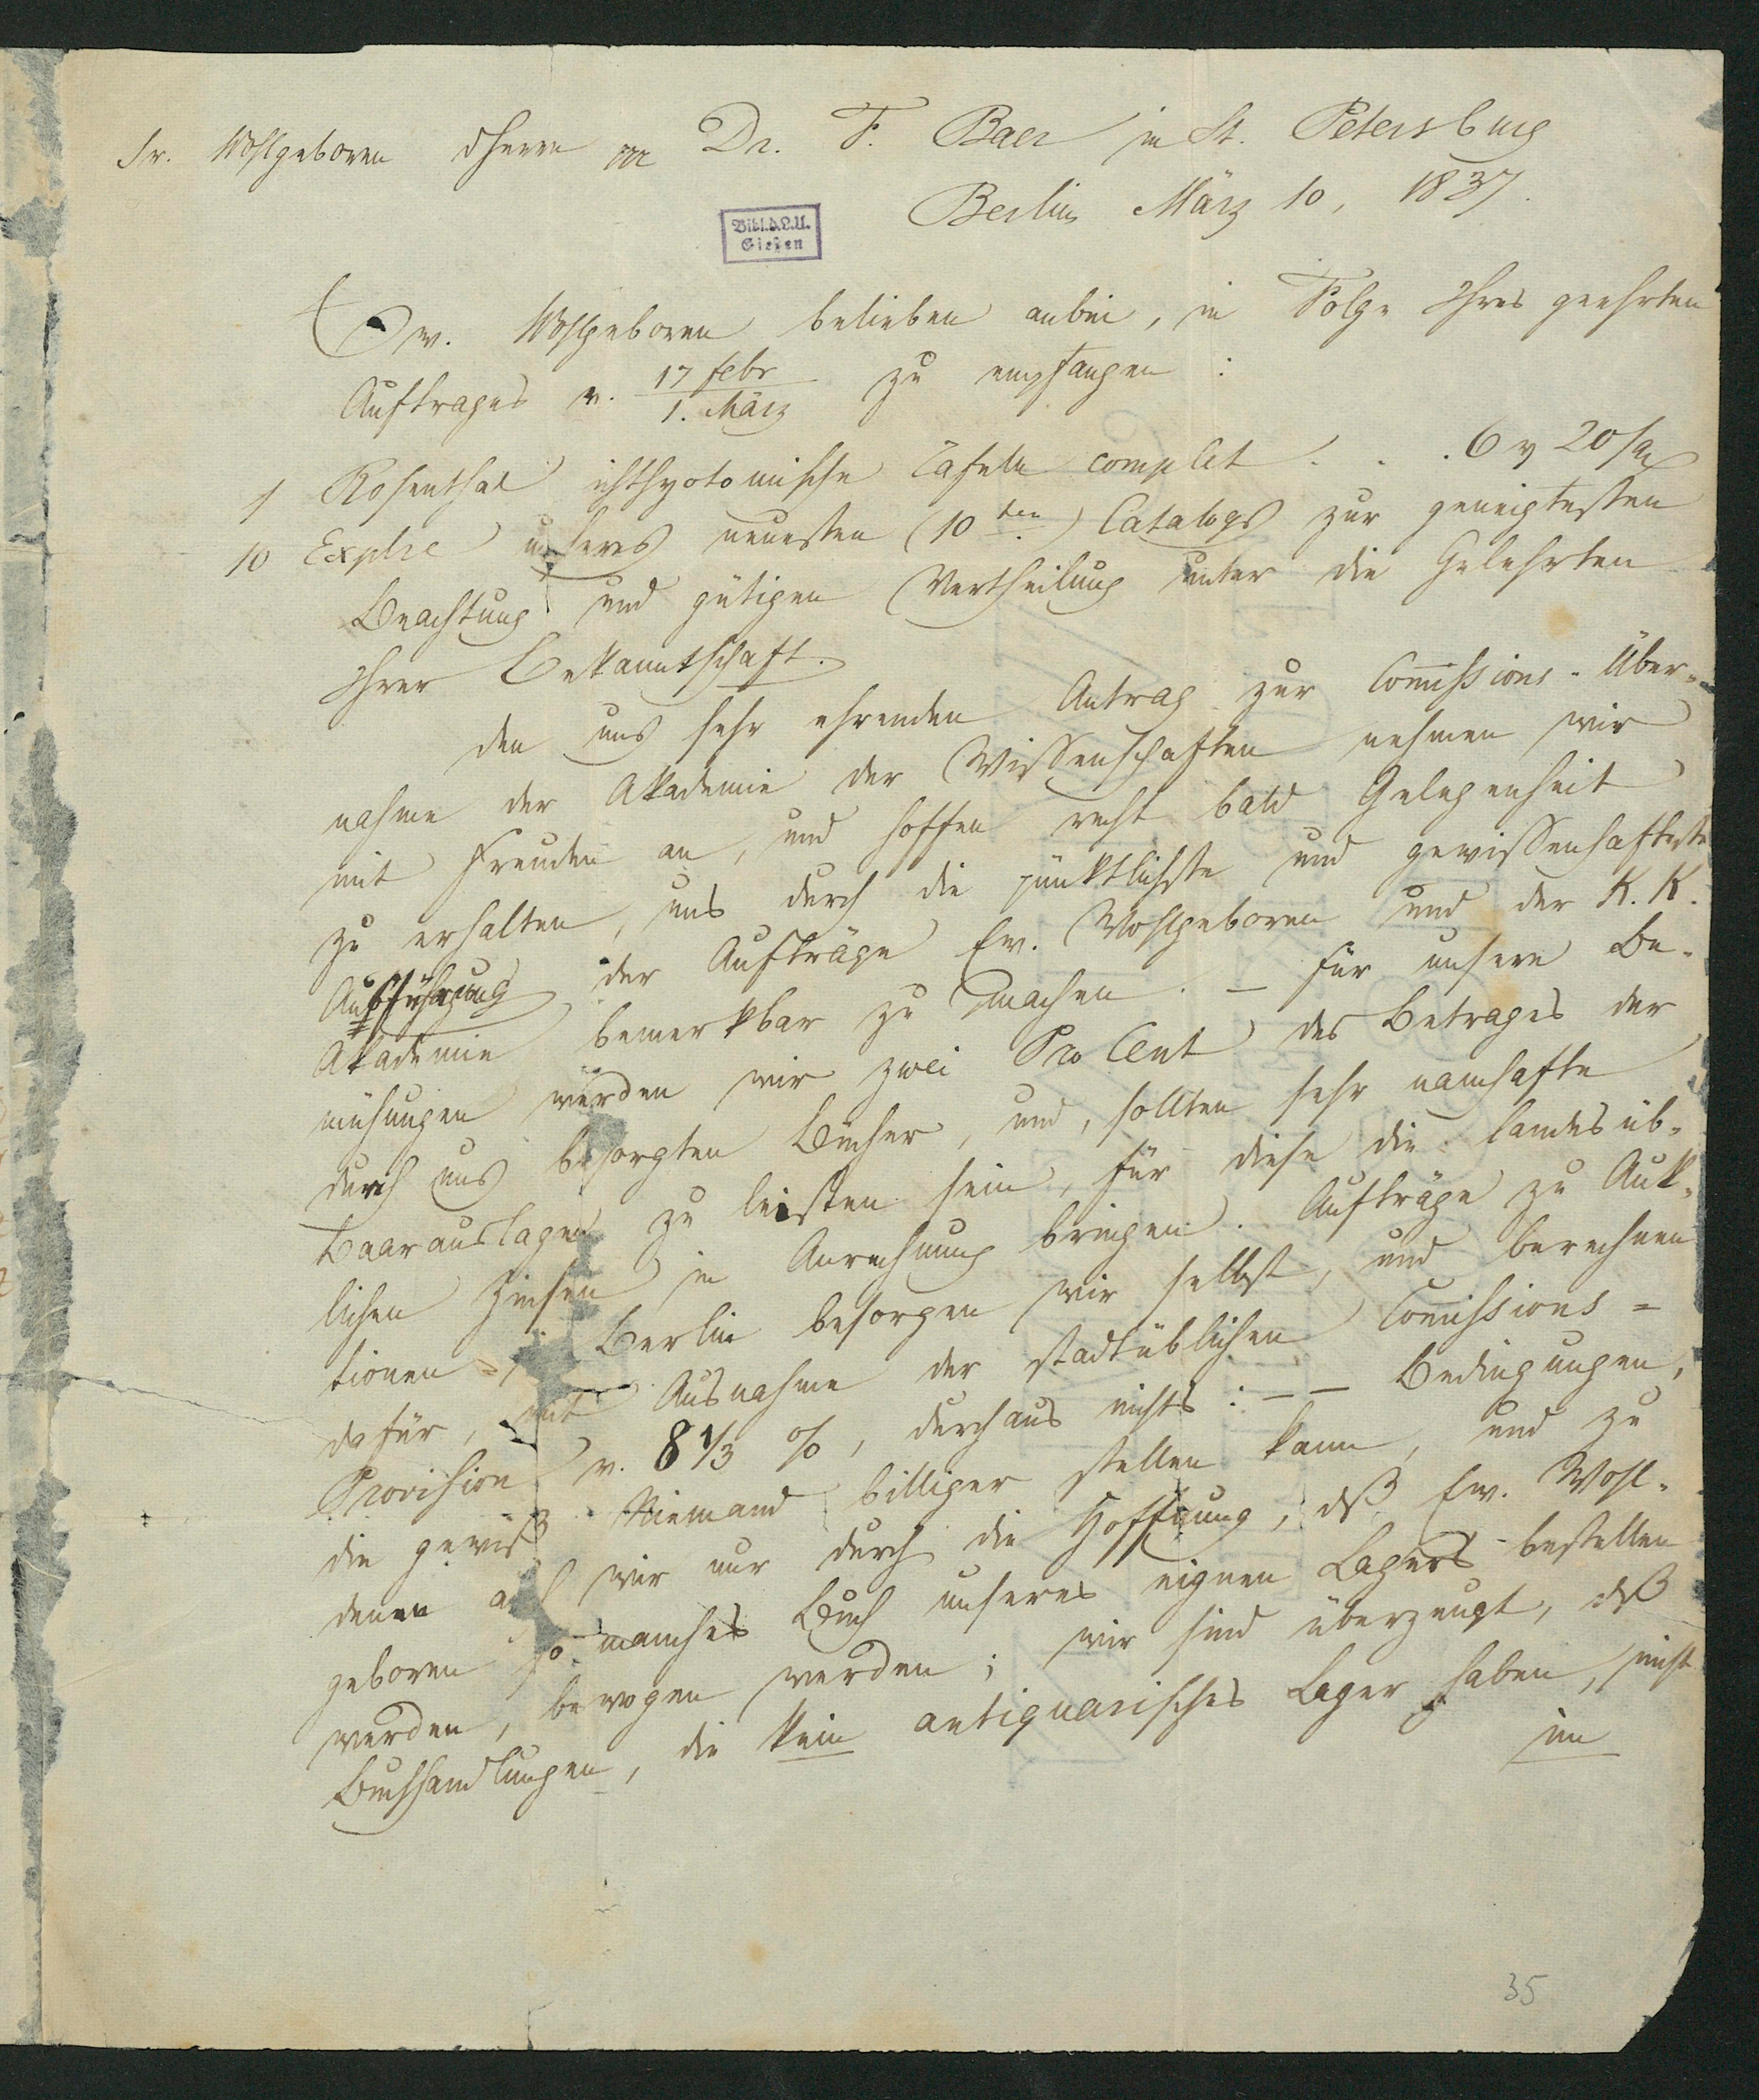 Sr. Wohlgeboren Herrn Dr. F. Baer in St. Petersburg
Berlin März 10, 1837.
Bibl. d. L.U.
Gießen
Ew. Wohlgeboren belieben anbei, in Folge Ihres geehrten
Auftrages v. 17 Febr / 1. März zu empfangen:
1 Rosenthal ichthyotomische Tafeln complet . . . 6 20
10 Explre unseres neuesten (10ten) Catalogs zur geneigtesten
Beachtung und gütigen Vertheilung unter die Gelehrten
Ihrer Bekanntschaft.
Den uns sehr ehrenden Antrag zur Commissions-Über-
nahme der Akademie der Wissenschaften nehmen wir
mit Freuden an, und hoffen recht bald Gelegenheit
zu erhalten, uns durch die pünktlichste und gewissenhafteste
Ausführung der Aufträge Ew. Wohlgeboren und der K. K.
Akademie bemerkbar zu machen. – Für unsere Be-
mühungen würden wir zwei Pro Cent des Betrages der
durch uns besorgten Bücher, und, sollten sehr namhafte
Baarauslagen zu leisten sein, für diese die landesüb-
lichen Zinsen in Anrechnung bringen. Aufträge zu Auk-
tionen in Berlin besorgen wir selbst, und berechnen
dafür, mit Ausnahme der stadtüblichen Comissions=
Provision v. 8 1/3 %, durchaus nichts: – – Bedingungen,
die gewiß Niemand billiger stellen kann, und zu
denen auch wir nur durch die Hoffnung, dß Ew. Wohl-
geboren so manches Buch unseres eignen Lagers bestellen
werden, bewogen werden; wir sind überzeugt, dß
Buchhandlungen, die kein antiquarisches Lager haben, nicht
im
35